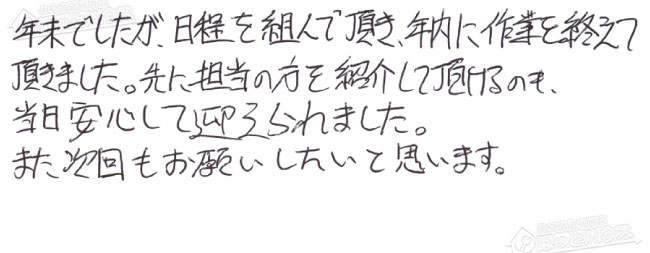 年末でしたが、日程を組んで頂き、年内に作業を終えて
頂きました。先に担当の方を紹介して頂けるのも、
当日安心して迎えられました。
また次回もお願いしたいと思います。